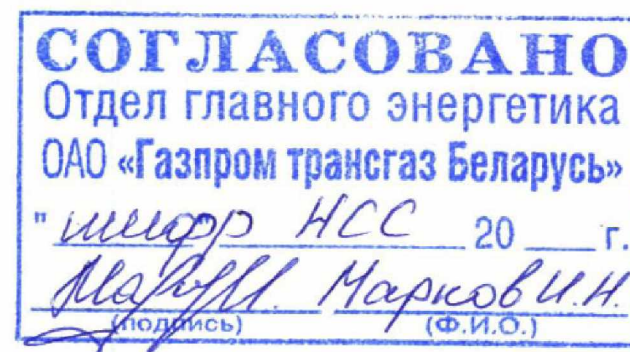 СОГЛАСОВАНО
Отдел главного энергетика
ОАО «Газпром трансгаз Беларусь»
" шифр НСС 20 ___ г.
Марков И.Н.
(подпись) (Ф.И.О.)